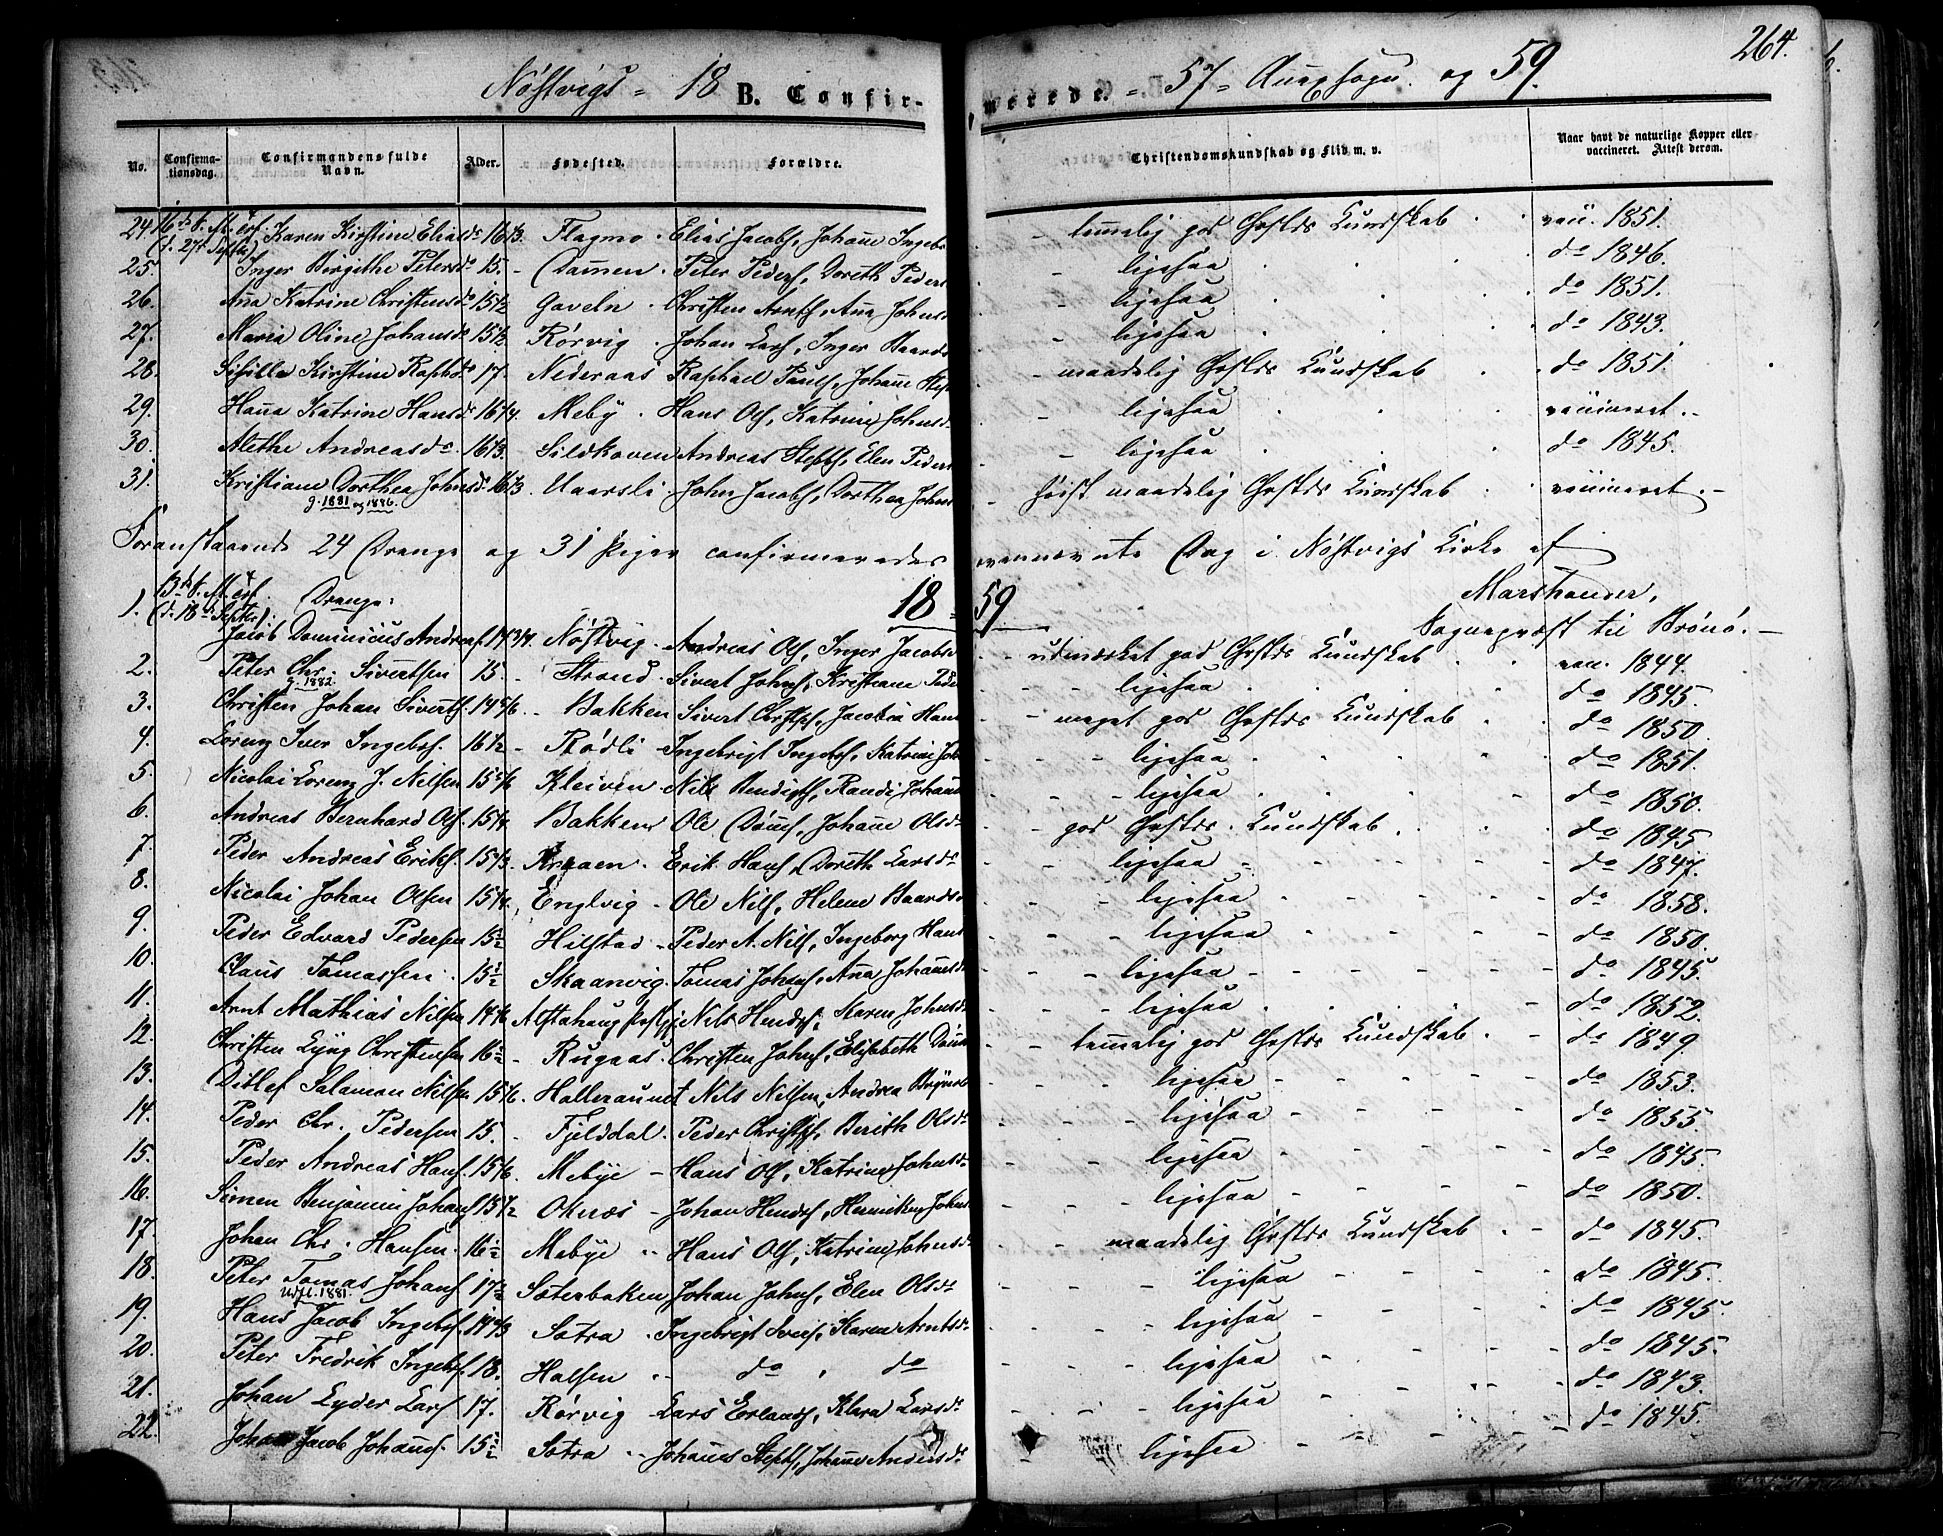 264.
Nøstvigs - 18 B. Confirmerede. - 57 - Annexsogn. og 59.
No. Confirmationsdag. Confirmandens fulde Navn. Alder. Fødested. Forældre. Christendomskundskab og Flid m. v. Naar havt de naturlige Kopper eller vaccineret. Attest derom.
24. 16de S. e. (d. 27de Septbr) Karen Kirstine Eliasdr 16 1/3. Flagmo - Elias Jacobs, Johanne Ingebr - temmelig god Chrstds Kundskab vacc. 1851.
25. Inger Birgethe Petersdr 15. - Dømen - Peter Peders, Doreth Peders - ligesaa do 1846.
26. Ana Katrine Christensdr 15 1/2 Gaveln - Christen Arnts, Ana Johnsd - ligesaa do 1851.
27. Maria Oline Johansdr 15 1/2 Rørvig - Johan Lars, Inger Baards - ligesaa do 1843.
28. Sisille Kirstine Raphsdr 17. Nederaas Raphael Pauls, Johanne - maadelig Chrstds Kundskab do 1851.
29. Hana Katrine Hansdr 16 1/4. Meby - Hans Ols, Katrine Johnsd - ligesaa vaccineret.-
30. Alethe Andreasdr 16 1/3. Sildhoven Andreas Stephs, Elen Peders - ligesaa do 1845.
31. Kristiane Dorthea Johnsdr 16 1/3. Aarsli John Jacobs, Dorthea Johns - høist maadelig Chrstds Kundskab vaccineret.-
g. 1881 og 1886.
Foranstaaende 24 Drenge og 31 Piger confirmeredes ovennævnte Dag i Nøstvigs Kirke af
Marshander,
Sognepræst til Brønø.-
18 - 59
Drenge:
1. 13de S. (d. 18de Septbr): Jacob Dominicus Andreas 14 3/4. Nøstvig - Andreas Ols, Inger Jacobs - udmærket god Chrstds Kundskab vacc. 1844.
2. Peter Chr. Sivertsen 15. - Strand - Sivert Johns, Kristiane Peder - ligesaa do 1845.
g. 1882.
3. Christen Johan Siverts 14 5/6 - Bakken Sivert Chrsts, Jacobia Hans - meget god Chrstds Kundskab do 1850.
4. Lorenz Iver Ingebs. 16 1/2 - Rødli - Ingebrigt Ingebs, Katrine Joh - ligesaa do 1851.
5. Nicolai Lorenz J. Nilsen 15 5/6 Kleiven - Nils Bendigts, Randi Johans - ligesaa do 1850.
6. Andreas Bernhard Ols. 15 1/4. Bakken Ole Døns, Johanne Olsd - god Chrstds. Kundskab do 1845
7. Peder Andreas Eriks. 15 1/3. Aaen - Erik Hans, Doreth Larsdr - ligesaa do 1847.
8. Nicolai Johan Olsen 15 1/4. Englvig - Ole Nils, Helene Baards - ligesaa do 1858.
9. Peder Edvard Pedersen 15 1/2 Hilstad - Peder A. Nils, Ingeborg Hans - ligesaa do 1850.
10. Claus Tomassen 15 1/2 Skaanvig. Tomas Johns, Ana Johans - ligesaa do 1845.
11. Arnt Mathias Nilsen 14 5/6 Alstahaug Nils Hendrs, Karen Johnsd - ligesaa do 1852.
12. Christen Lyng Christensen 16 1/2 - Rugaas. Christen Johns, Elisabeth - temmelig god Chrstds Kundskab do 1849
13. Ditlef Salamon Nilsen 15 1/6. Halleraunet Nils Nilsen, Andrea Brynels - ligesaa do 1853.
14. Peder Chr. Pedersen 15. - Fjelddal. Peder Christs, Berith Olsd - ligesaa do 1855.
15. Peder Andreas Hans. 15 5/6. Mebye - Hans Ols, Katrine Johnsd - ligesaa do 1845.
16. Simen Benjamin Johans 15 1/2 Oknæs - Johan Hendrs, Henrikke Johns - ligesaa do 1850.
17. Johan Chr. Hansen. 16 1/2 Mebye - Hans Ols, Katrine Johnsd - maadelig Chrstds Kundskab do 1845.
18. Peter Tomas Johans 17 1/2 Sæterbakken Johan Johns, Elen Olsdr - ligesaa do 1845.
Udfl. 1881.
19. Hans Jacob Ingebs. 19 1/3 Søtra - Ingebrigt Ivers, Karen Arntsd - ligesaa do 1845
20. Peter Fredrik Ingebs. 18. Halsen - do , do - ligesaa do 1845.
21. Johan Lyder Lars 17. Rørvig - Lars Erlands, Klara Larsdr - ligesaa do 1843.
22. Johan Jacob Johans. 15 1/2 Søtra - Johanes Stephs, Johanne Andersdr - ligesaa do 1845.